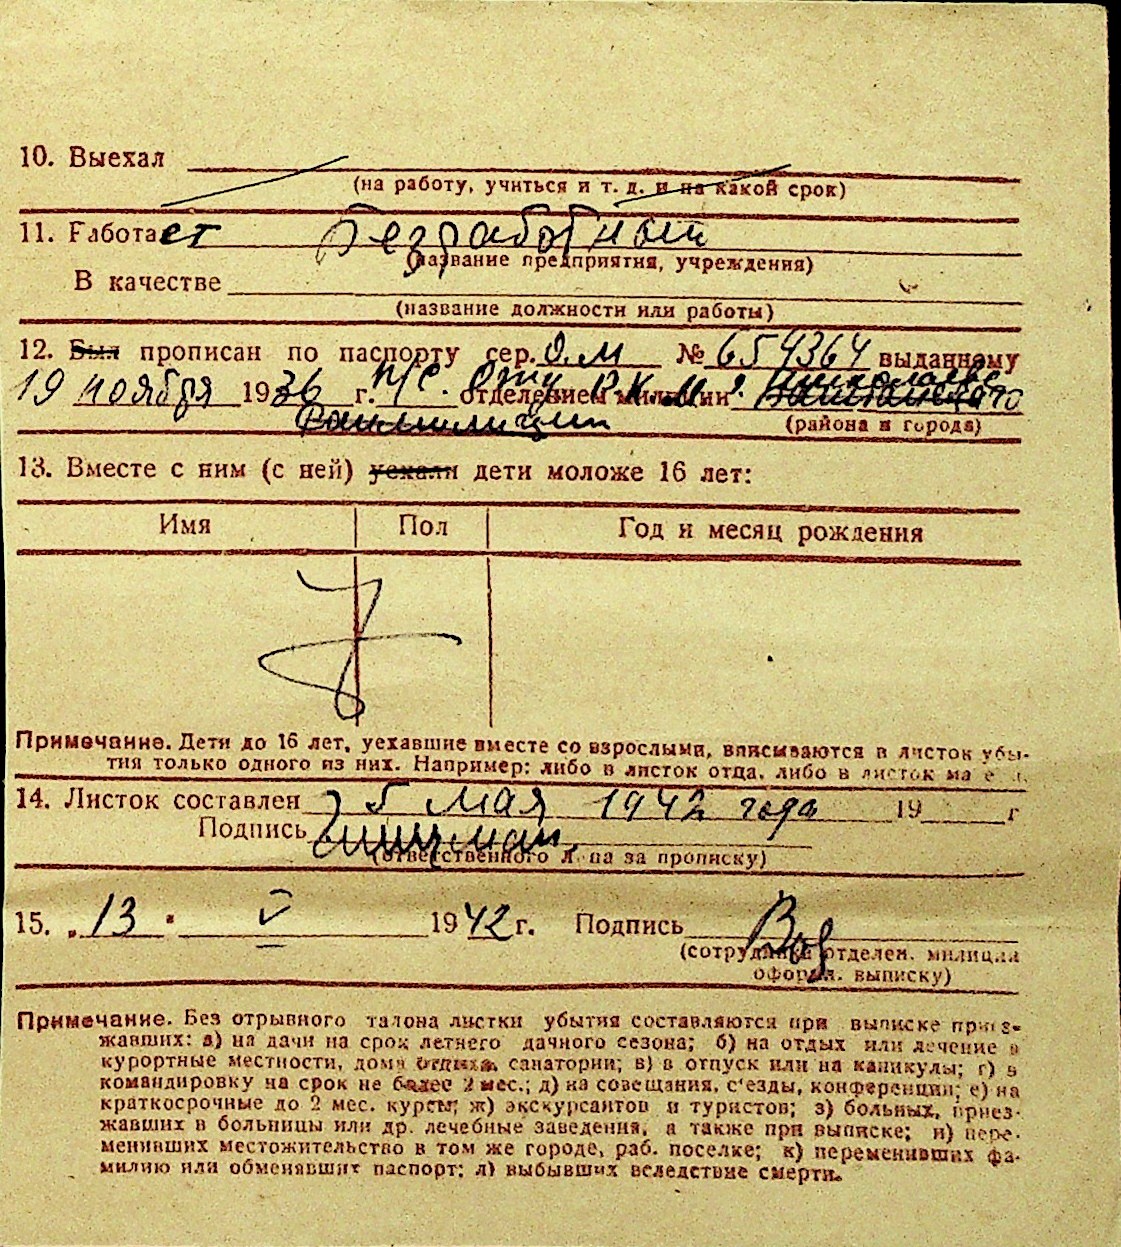 10. Выехал
(на работу, учиться и т. д. и на какой срок)
11. Работает Безработный
(название предприятия, учреждения)
В качестве
(название должности или работы)
12. Был прописан по паспорту сер. О.М № 659364 выданному
19 ноября 1936 г. п/с. отделением милиции
(района и города)
13. Вместе с ним (с ней) уехали дети моложе 16 лет:
Имя Пол Год и месяц рождения
Примечание. Дети до 16 лет, уехавшие вместе со взрослыми, вписываются в листок убы-
тия только одного из них. Например: либо в листок отца, либо в листок
14. Листок составлен 5 мая 1942 года 19 г
Подпись
(ответственного лица за прописку)
15. „13" V 1942 г. Подпись
(сотрудника отделен. милиции
оформл. выписку)
Примечание. Без отрывного талона листки убытия составляются при выписке приез-
жавших: а) на дачи на срок летнего дачного сезона; б) на отдых или лечение в
курортные местности, дома отдыха, санатории; в) в отпуск или на каникулы; г) в
командировку на срок не более 2 мес.; д) на совещания, с'езды, конференции; е) на
краткосрочные до 2 мес. курсы; ж) экскурсантов и туристов; з) больных, приез-
жавших в больницы или др. лечебные заведения, а также при выписке; и) пере-
менивших местожительство в том же городе, раб. поселке; к) переменивших фа-
милию или обменявших паспорт; л) выбывших вследствие смерти.